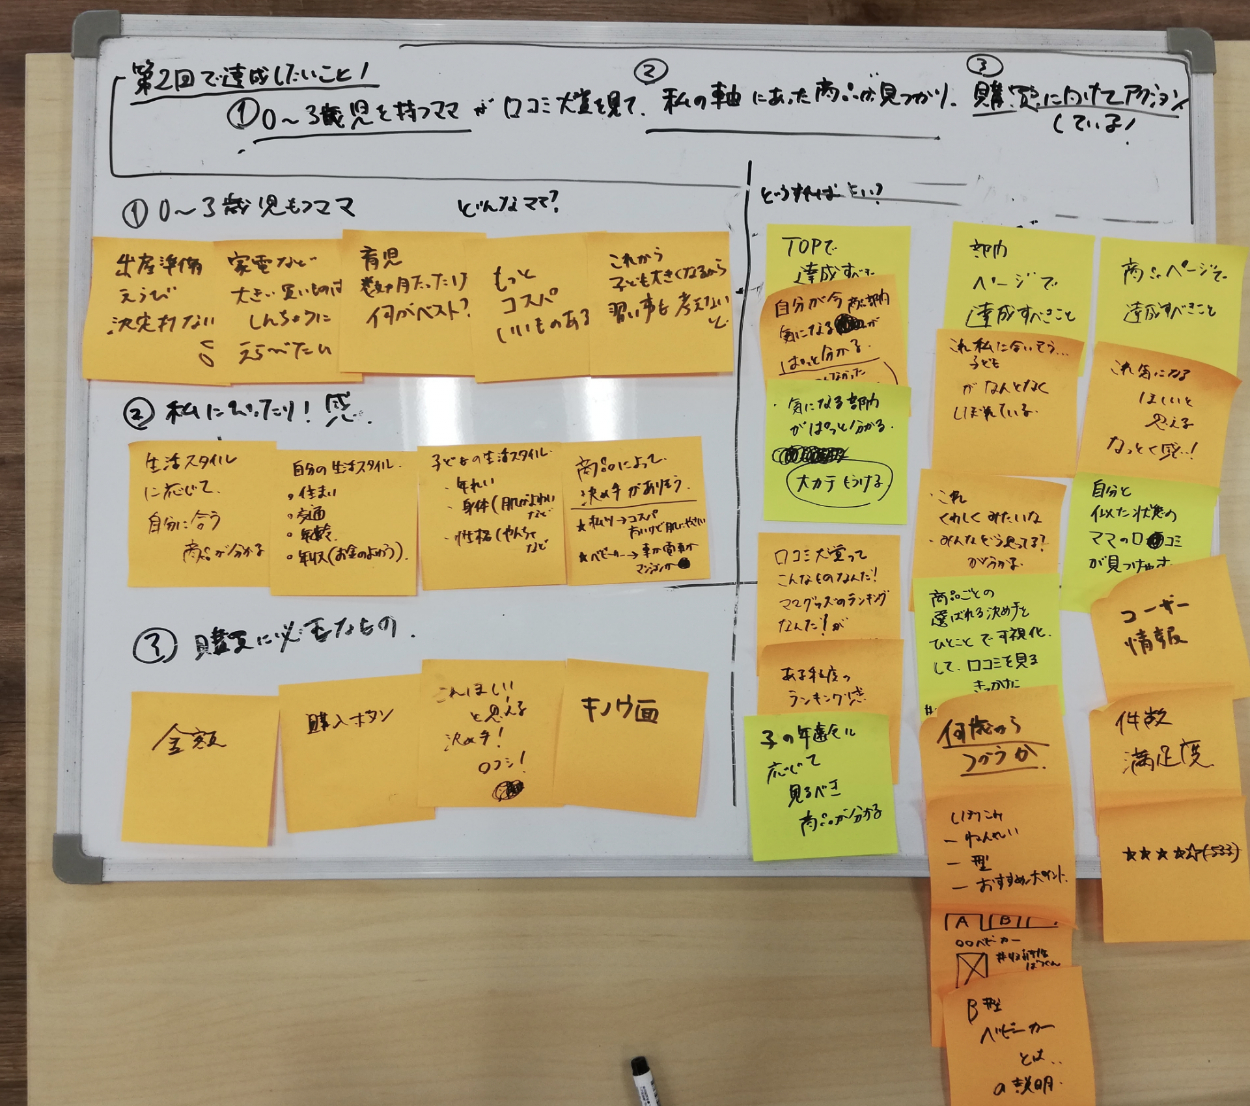 第2回で達成したいこと!
② ③
①0〜3歳児を持つママが口コミ大賞を見て、私の軸にあった商品が見つかり、購買に向けてアクション
している!
①0〜3歳児もつママ どんなママ?
出産準備
えらび
決定れない
家電など
大きい買いものは
しんちょうに
えらべたい
育児
数ヶ月たったけ
何がベスト?
もっと
コスパ
いいものある
これから
子ども大きくなるから
習い事も考えない
と
②私にぴったり!感.
生活スタイル
に応じて.
自分に合う
商品が分かる
自分の生活スタイル.
・住まい
・交通
・年齢.
・年収(お金のよゆう).
子どもの生活スタイル.
・年れい
・身体(肌がよわい
など
・性格(やんちゃ
など
商品によって.
決め手がありそう.
★ベビーカー→車か電車か
マンションか
③ 購買に必要なもの.
金額
購入ボタン
これほしい!
と思える
決め手!
口コミ!
キノウ面
どうすれば よい?
TOPで
達成すべき
自分が今
気になる が
ぱっと分かる.
・気になる部門
がぱっと分かる.
大カテもうける
口コミ大賞って
こんなものなんだ!
ママグッズのランキング
なんだ!が
ある程度の
ランキング感
子の年齢に
応じて
見るべき
商品が分かる
部門
ページで
達成すべきこと
これ私に合いそう...
子ども
がなんとなく
しぼれている.
・これ
くわしくみたいな
・みんなどう思ってる?
がうかぶ.
商品ごとの
選ばれる決め手を
ひとことで可視化.
して、口コミを見る
きっかけに
何歳から
つかうか.
しぼりこみ
ー ねんれい
ー 型
ー おすすめポイント.
A B
○○ベビーカー
B型
ベビーカー
とは..
の説明.
商品ページで
達成すべきこと
これ気になる
ほしいと
思える
なっとく感!
自分と
似た状態の
ママの口コミ
が見つけやす
ユーザー
情報
件数
満足度.
★★★★☆(533)